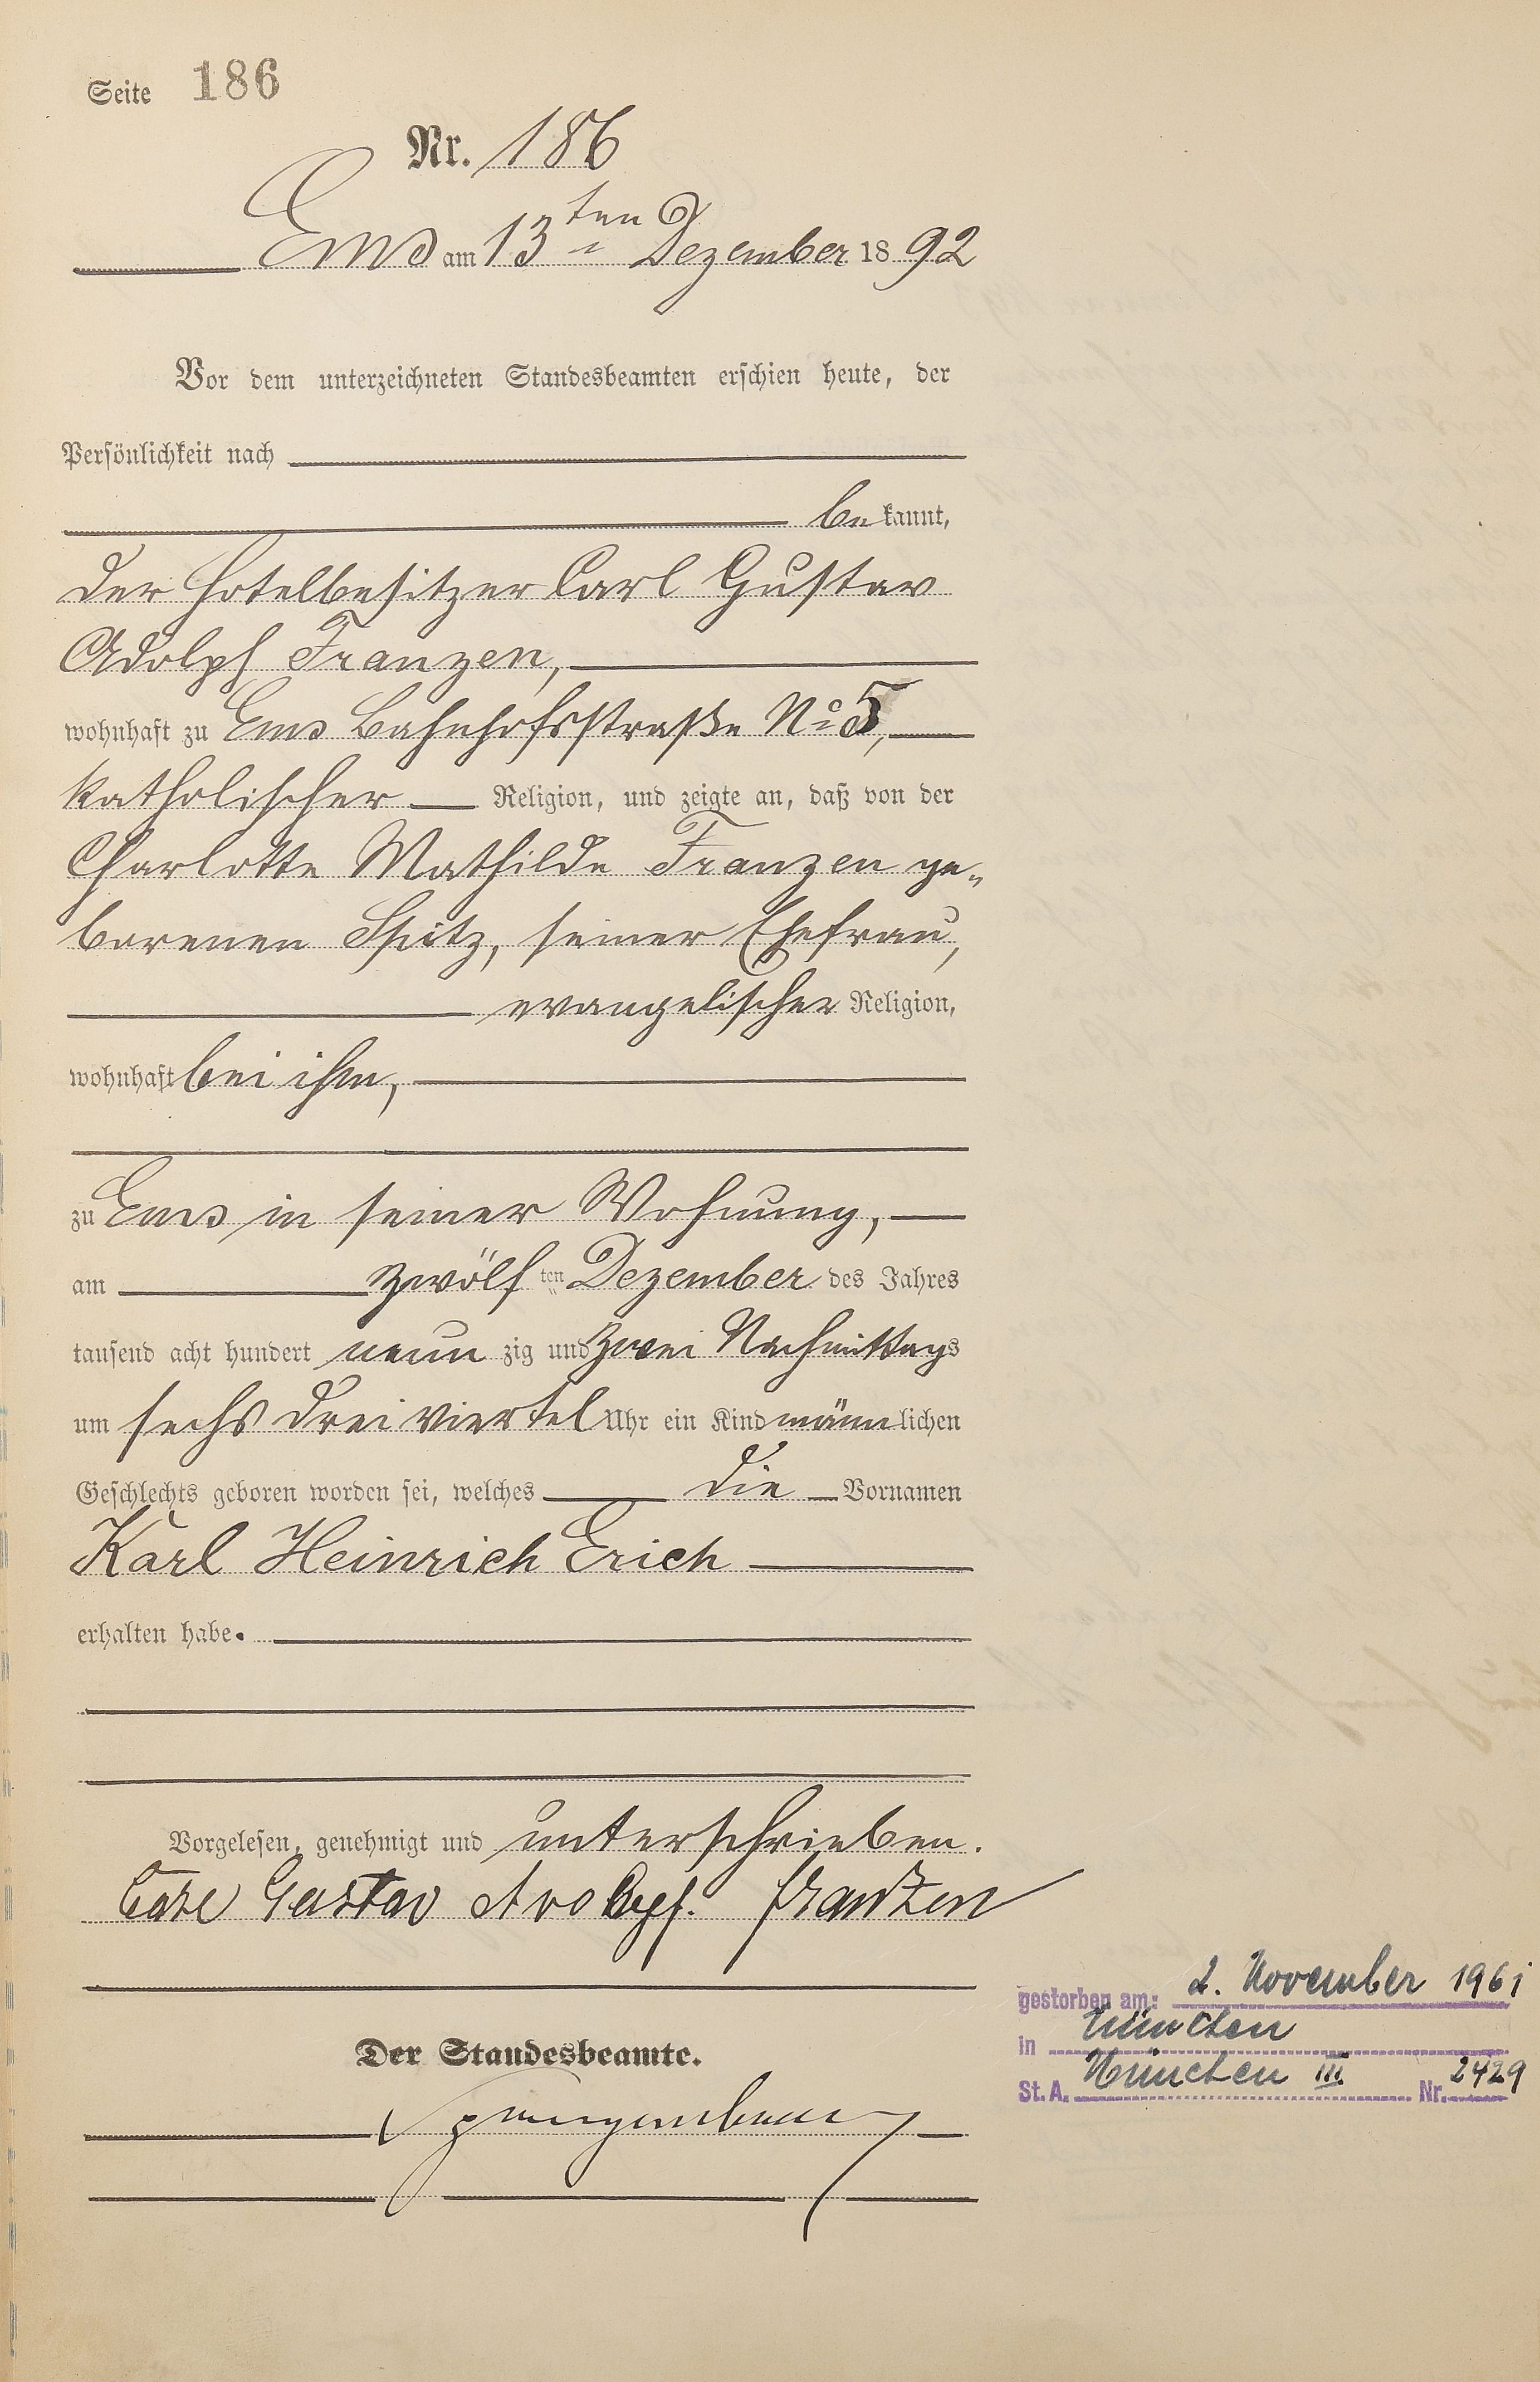 Seite 186
Nr. 186
Ems am 13ten Dezember 1892
Vor dem unterzeichneten Standesbeamten erschien heute, der
Persönlichkeit nach
bekannt,
der Hotelbesitzer Carl Gustav
Adolph Franzen,
wohnhaft zu Ems Bahnhofsstraße No 5,
katholischer Religion, und zeigte an, daß von der
Charlotte Mathilde Franzen ge„
borenen Spitz, seiner Ehefrau,
evangelischer Religion,
wohnhaft bei ihm,
zu Ems in seiner Wohnung,
am zwölften Dezember des Jahres
tausend acht hundert neunzig und zwei Nachmittags
um sechs drei viertel Uhr ein Kind männlichen
Geschlechts geboren worden sei, welches die Vornamen
Karl Heinrich Erich
erhalten habe.
Vorgelesen, genehmigt und unterschrieben.
Carl Gustav Franzen
Der Standesbeamte.
gestorben am: 2. November 1961
in München
St. A. München III Nr. 2429